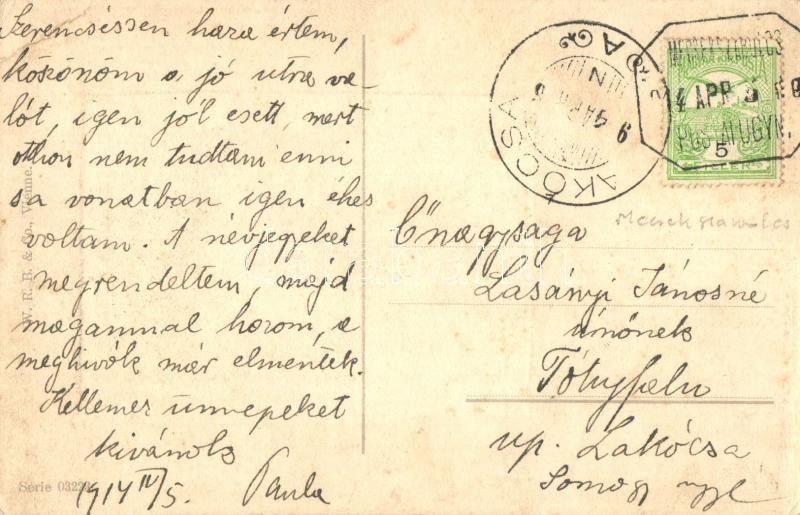 Szerencséssen haza értem,
köszönöm a jó utra va-
lót, igen jól esett, mert
otthon nem tudtam enni
s a vonatban igen éhes
voltam. A névjegyeket
megrendeltem, majd
magammal hozom, a
meghivók már elmentek.
Kellemes ünnepeket
kivánok
1914 IV/5. Paula
W. R. B. & Co., Vienne.
Série 03
LAKÓCSA
914 APR
5
Őnagysága
Lasányi Jánosné
úrnőnek
Tótujfalu
up. Lakócsa
Somogy megye